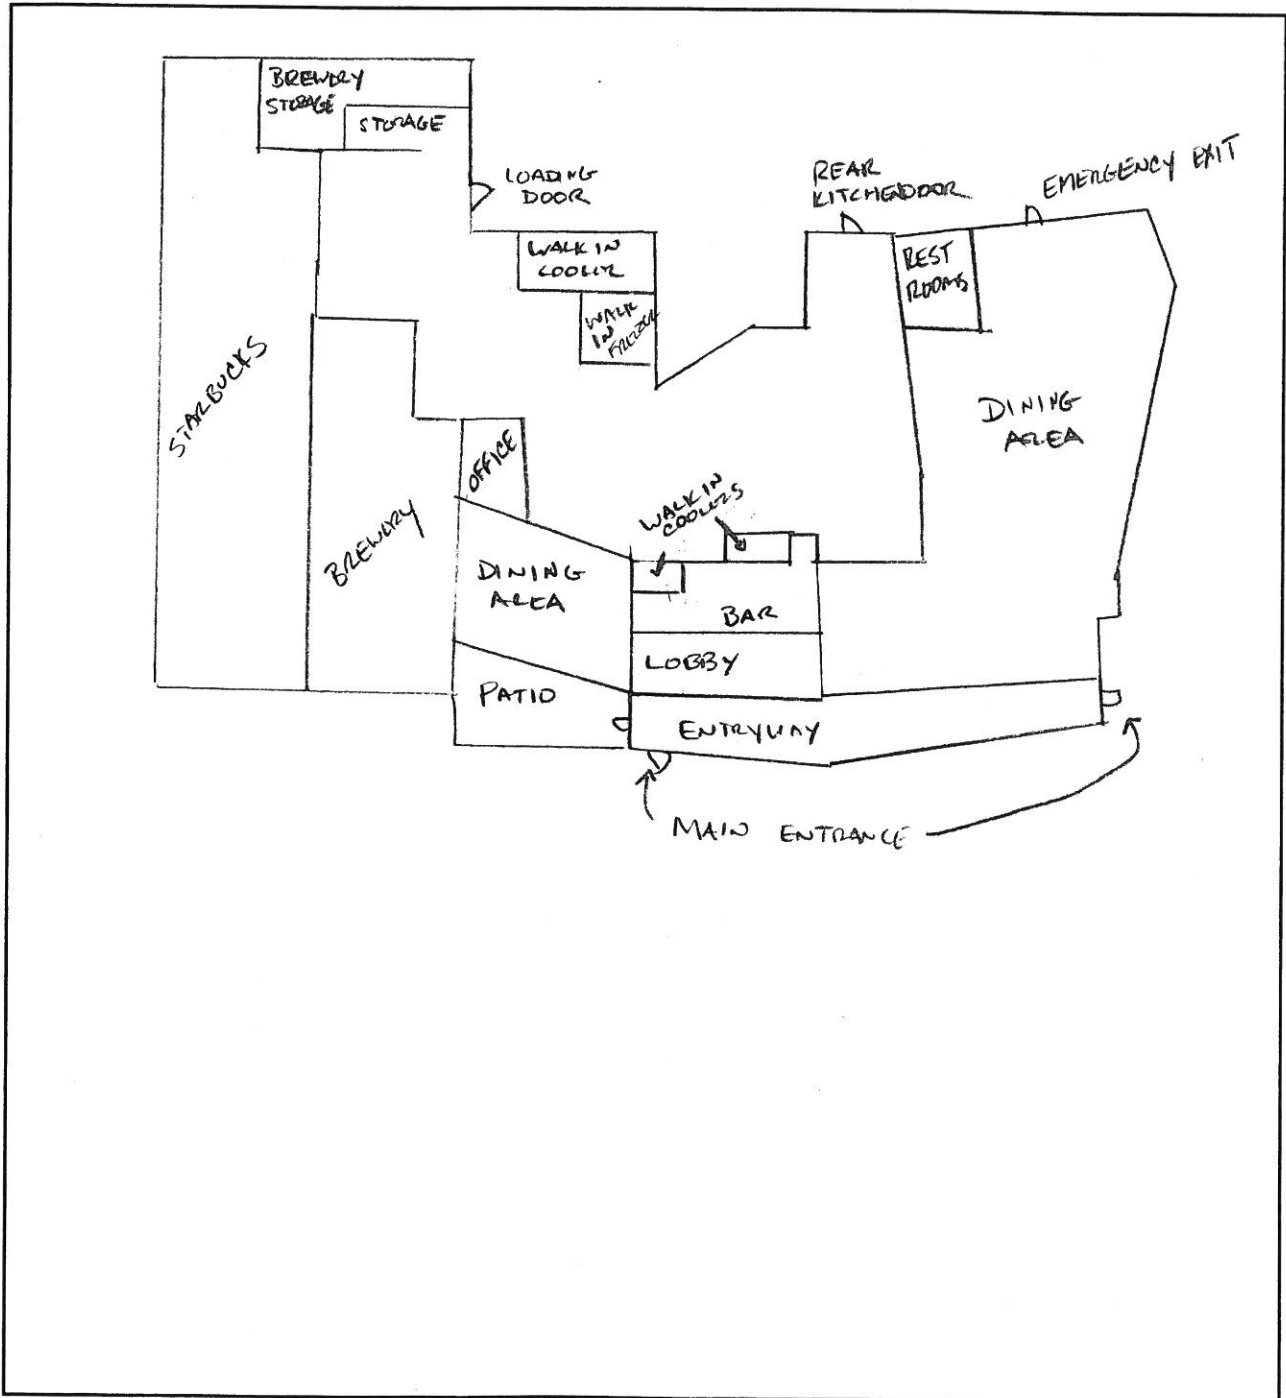 BREWERY
STORAGE
STORAGE
LOADING
DOOR
REAR
KITCHEN DOOR
EMERGENCY EXIT
WALK IN
COOLER
WALK
IN
FREEZER
REST
ROOMS
STARBUCKS
DINING
AREA
OFFICE
WALK IN
COOLERS
BREWERY
DINING
AREA
BAR
LOBBY
PATIO
ENTRYWAY
MAIN ENTRANCE